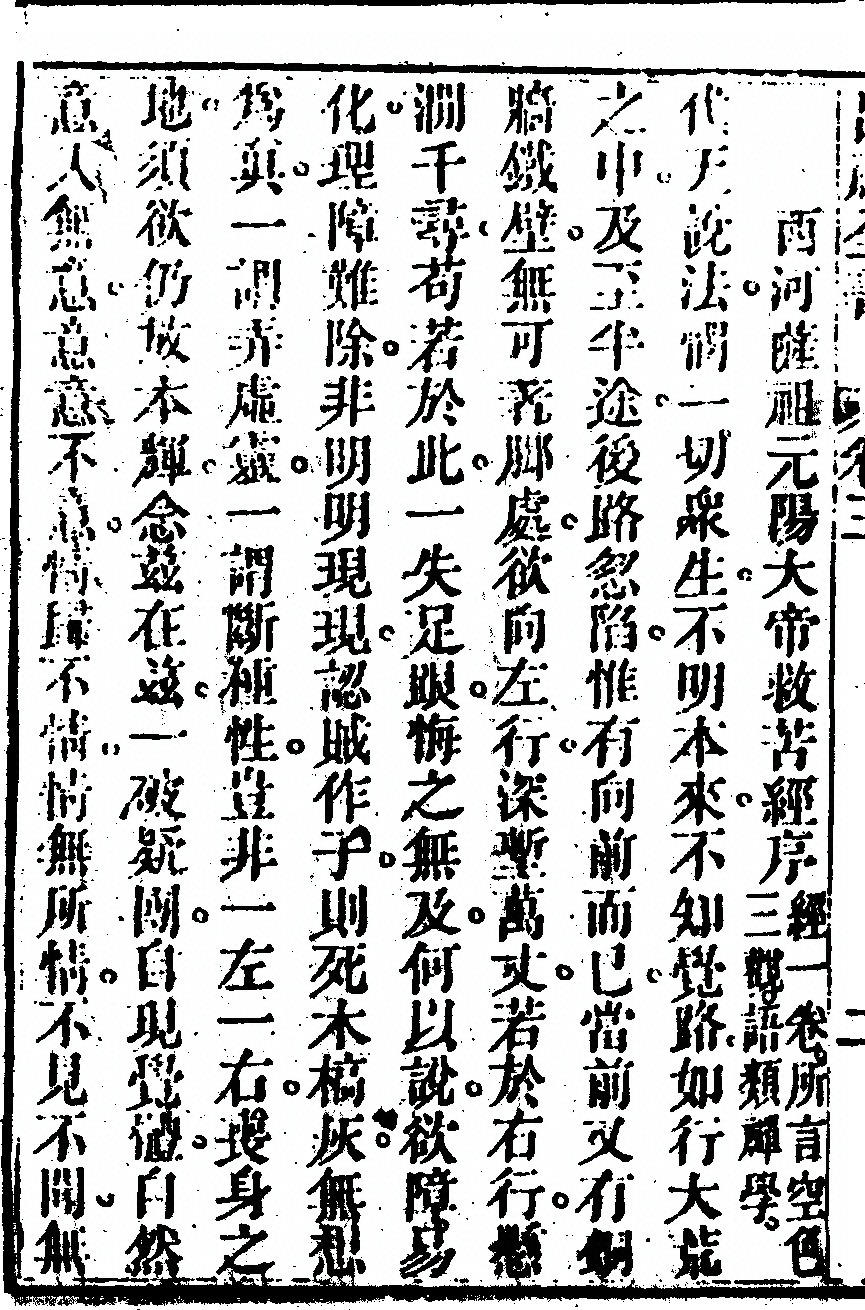 西河薩祖元陽大帝救苦經序
經一卷所言空色
三觀語類禪學
代天說法開一切眾生不明本來不知覺路如行大荒
之中及至半途後路忽陷惟有向前而已當前又有銅
牆鐵壁無可着脚處欲向左行深塹萬丈若於右行懸
澗千尋苟若於此一失足眼悔之無及何以說欲障易
化理障難除非明明現現認賊作子則死木槁灰無想
為真一謂弄虛靈一謂斷種性豈非一左一右喪身之
地須欲仍故本輝念茲在茲一破疑團自現覺體自然
意人無意意意不意情 不情情無所情不見不聞無